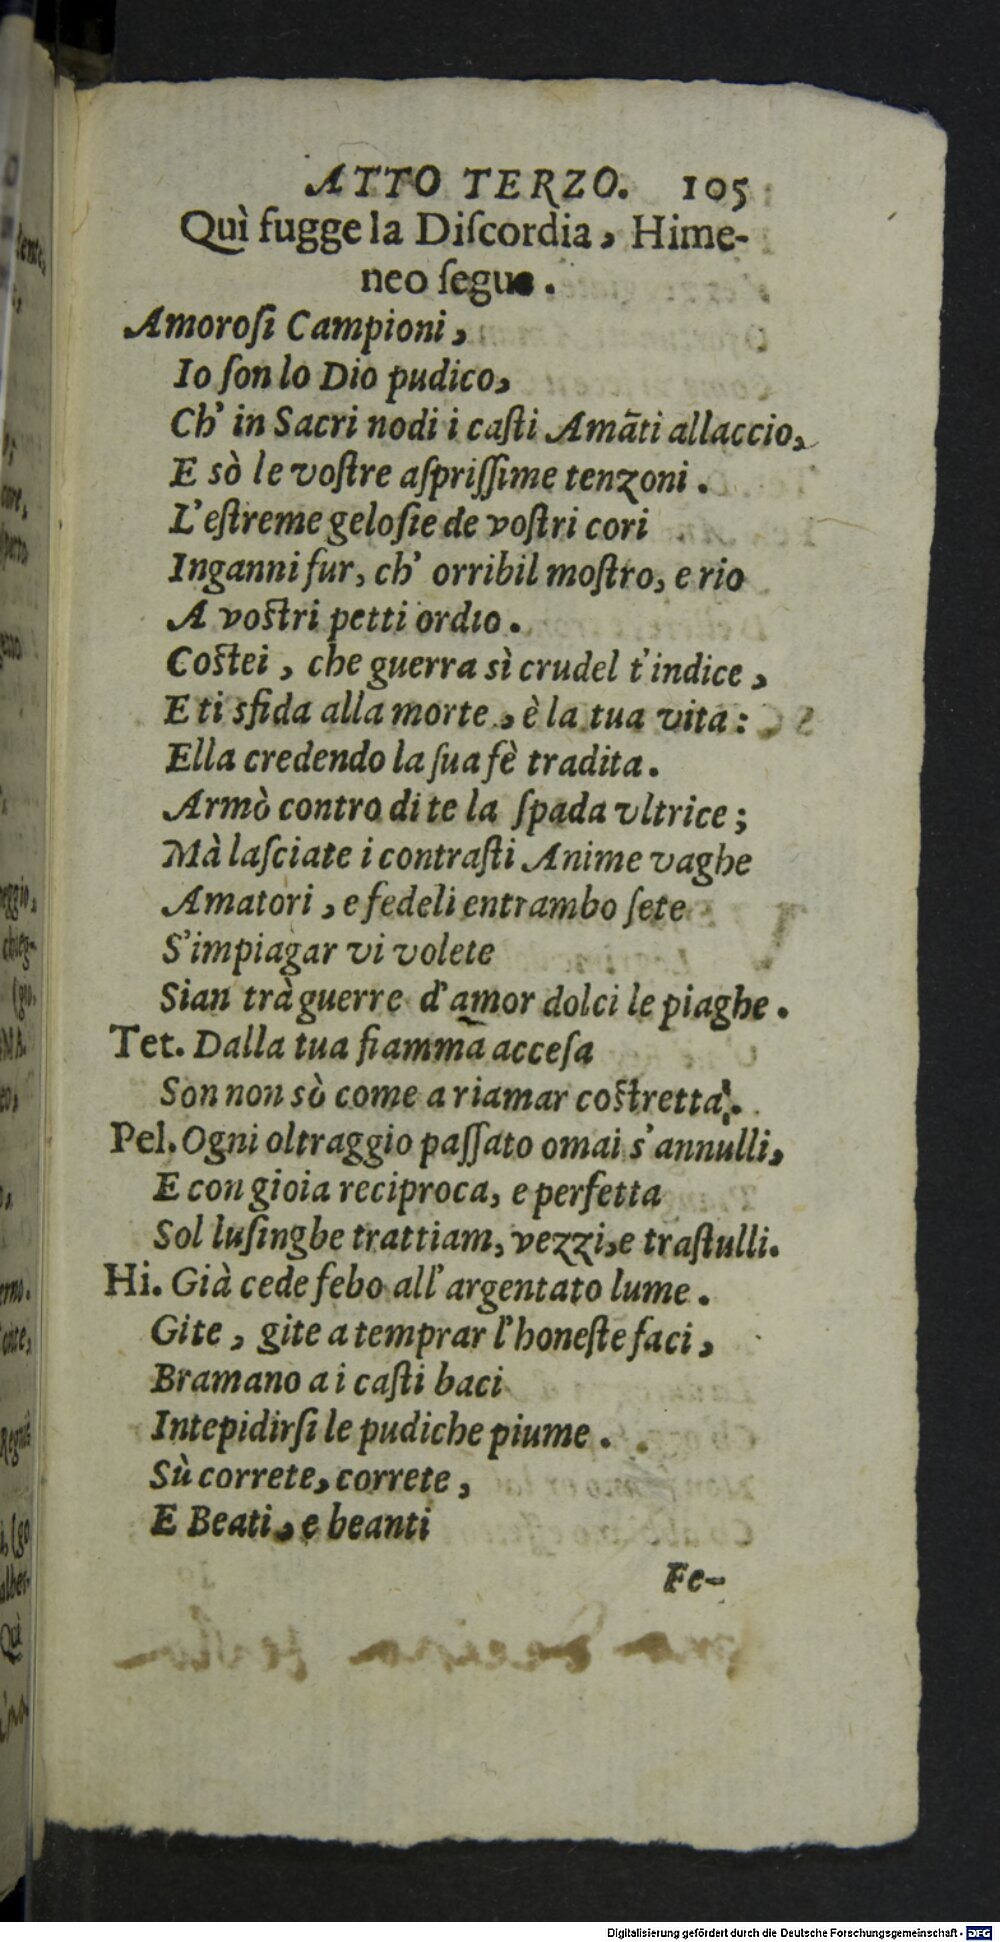 ATTO TERZO. 105
Quì fugge la Diſcordia, Hime-
neo ſegue.
Amoroſi Campioni,
Io ſon lo Dio pudico,
Ch' in Sacri nodi i caſti Amãti allaccio,
E sò le voſtre aſpriſſime tenzoni.
L'eſtreme geloſie de voſtri cori
Inganni fur, ch' orribil moſtro, e rio
A voſtri petti ordìo.
Coſtei, che guerra sì crudel t'indice,
E ti sfida alla morte, è la tua vita:
Ella credendo la ſua fè tradita.
Armò contro di te la ſpada vltrice;
Mà laſciate i contraſti Anime vaghe
Amatori, e fedeli entrambo ſete
S'impiagar vi volete
Sian trà guerre d'amor dolci le piaghe.
Tet. Dalla tua fiamma acceſa
Son non sò come a riamar coſtretta.
Pel. Ogni oltraggio paſſato omai s'annulli,
E con gioia reciproca, e perfetta
Sol luſinghe trattiam, vezzi, e traſtulli.
Hi. Già cede febo all'argentato lume.
Gite, gite a temprar l'honeſte faci,
Bramano a i caſti baci
Intepidirſi le pudiche piume.
Sù correte, correte,
E Beati, e beanti
Fe-
Digitalisierung gefördert durch die Deutsche Forschungsgemeinschaft - DFG